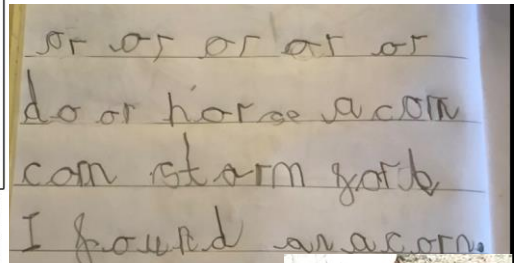 or or or or or
door horse acorn
corn storm fork
I found an acorn.